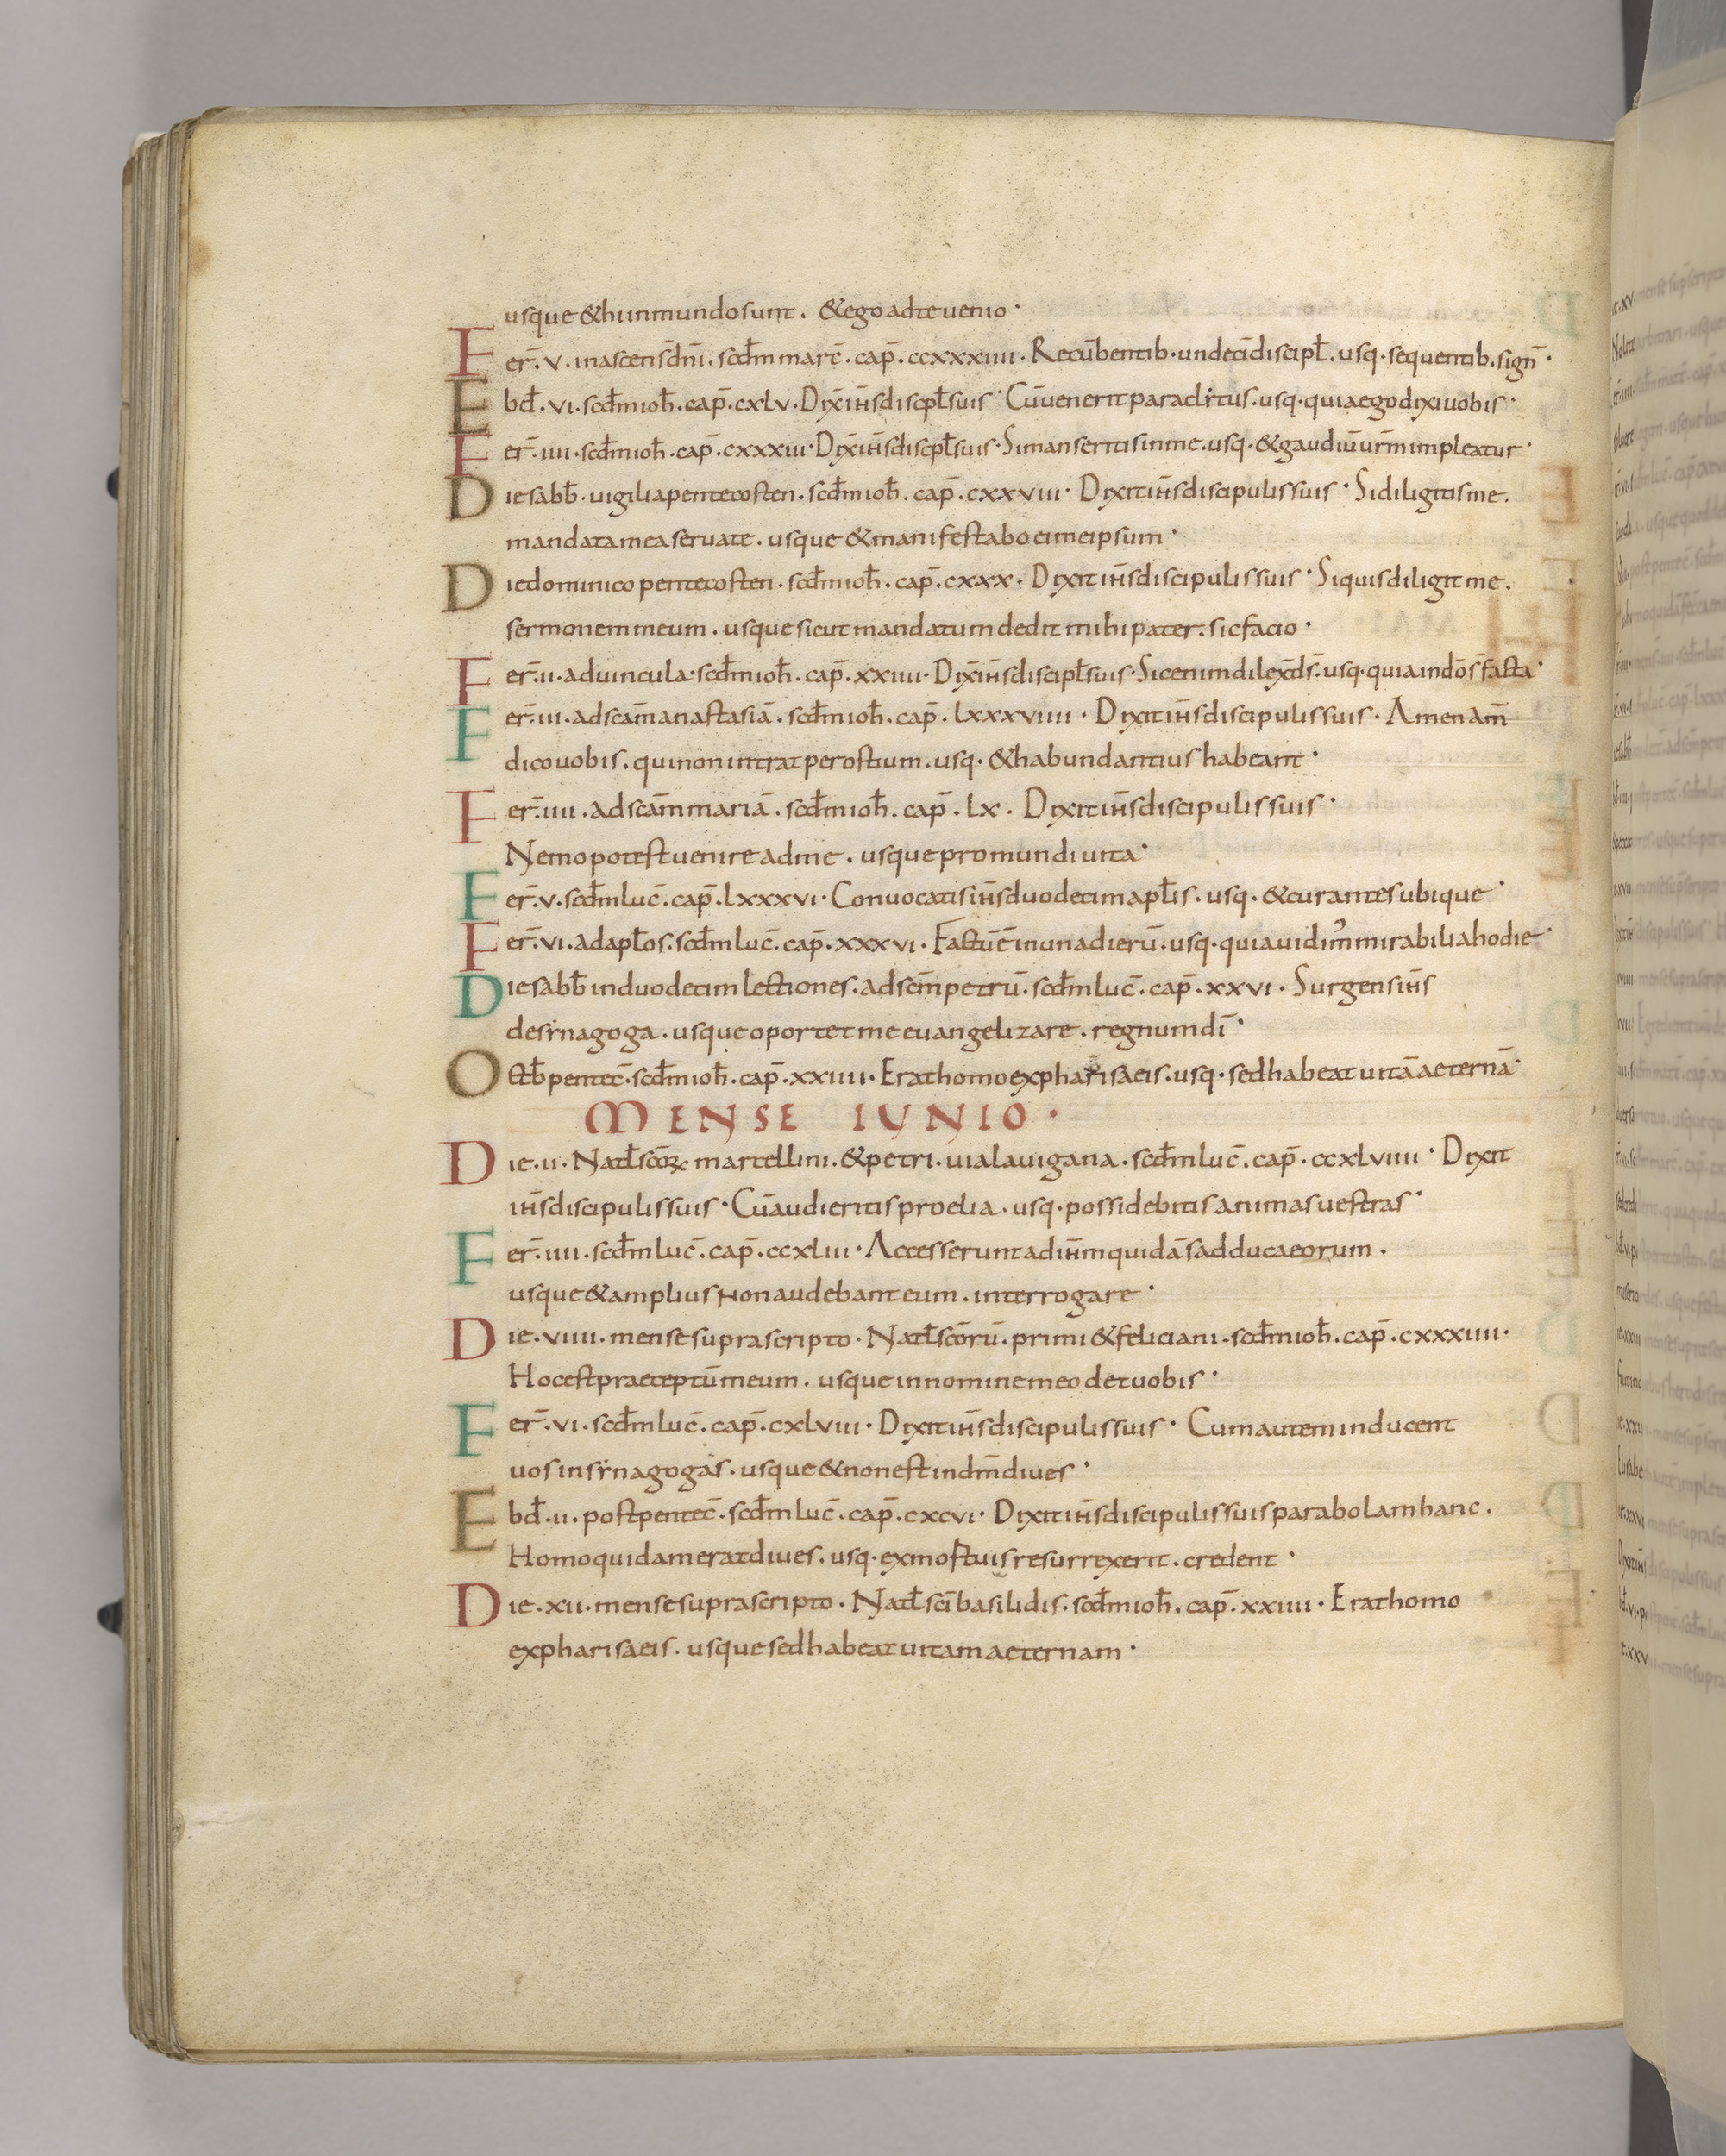 usque & hi in mundo sunt. & ego ad te uenio·
Fer̄. v. in ascens̄ dn̄i. scd̄m marc̄. cap̄. ccxxxiiii. Recūbentib· undeci̅ discipl̄. usq· sequentib. sign̄·
Ebd̄. vi. scd̄m ioh̄. cap̄. cxlv. Dix̄ ih̄s discipl̄ suis· Cū uenerit paraclitus. usq· quia ego dixi uobis·
Fer̄. iiii. scd̄m ioh̄. cap̄. cxxxiii· Dix̄ ih̄s discipl̄ suis· Si manseritis in me. usq· & gaudiū ur̄m impleatur·
Die sabb̄. uigilia pentecosten. scd̄m ioh̄. cap̄. cxxviii· Dixit ih̄s discipulis suis· Si diligitis me.
mandata mea seruate. usque & manifestabo ei me ipsum·
Die dominico pentecosten. scd̄m ioh̄. cap̄. cxxx· Dixit ih̄s discipulis suis· Siquis diligit me.
sermonem meum. usque sicut mandatum dedit mihi pater. sic facio·
Fer̄. ii. ad uincula· scd̄m ioh̄. cap̄. xxiiii· Dix̄ ih̄s discipl̄ suis· Sic enim dilex̄ ds̄. usq· quia in dō s̄ facta·
Fer̄. iii. ad scām anastasiā. scd̄m ioh̄. cap̄. lxxxviiii· Dixit ih̄s discipulis suis· Amen am̄
dico uobis. qui non intrat per ostium. usq· & habundantius habeant·
Fer̄. iiii. ad scām mariā. scd̄m ioh̄. cap̄. lx. Dixit ih̄s discipulis suis·
Nemo potest uenire ad me. usque pro mundi uita·
Fer̄. v. scd̄m luc̄. cap̄. lxxxvi· Conuocatis ih̄s duodecim apl̄is. usq· & curantes ubique·
Fer̄. vi. ad apl̄os. scd̄m luc̄. cap̄. xxxvi. Factū ē in una dierū. usq· quia uidim᾿ mirabilia hodie·
Die sabb̄ in duodecim lectiones. ad sc̄m petrū. scd̄m luc̄. cap̄. xxvi. Surgens ih̄s
de synagoga. usque oportet me euangelizare. regnum dī·
Octb̄ pentec̄. scd̄m ioh̄. cap̄. xxiiii. Erat homo ex pharisaeis. usq· sed habeat uitā aeternā·
MENSE IUNIO·
Die. ii. Natl̄ scōꝝ martellini. & petri. uia lauigana. scd̄m luc̄. cap̄. ccxlviiii· Dixit
ih̄s discipulis suis· Cū audieritis proelia. usq· possidebitis animas uestras·
Fer̄. iiii. scd̄m luc̄. cap̄. ccxliii· Accesserunt ad ih̄m quidā sadducaeorum.
usque & amplius non audebant eum. interrogare·
Die. viiii. mense suprascripto. Natl̄ scōrū. primi & feliciani. scd̄m ioh̄. cap̄. cxxxiiii·
Hoc est praeceptū meum. usque in nomine meo det uobis·
Fer̄. vi. scd̄m luc̄. cap̄. cxlviii. Dixit ih̄s discipulis suis· Cum autem inducent
uos in synagogas. usque & non est in dm̄ diues·
Ebd̄. ii. post pentec̄. scd̄m luc̄. cap̄. cxcvi· Dixit ih̄s discipulis suis parabolam hanc.
Homo quidam erat diues. usq· ex mortuis resurrexerit. credent·
Die. xii. mense suprascripto. Natl̄ scī basilidis. scd̄m ioh̄. cap̄. xxiiii· Erat homo
ex pharisaeis. usque sed habeat uitam aeternam·